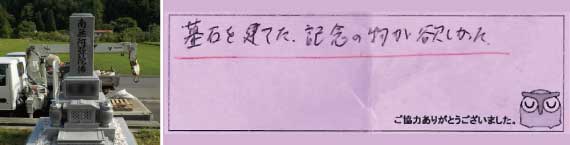 南無阿弥陀佛
墓石を建てた.記念の物が欲しかった.
ご協力ありがとうございました。